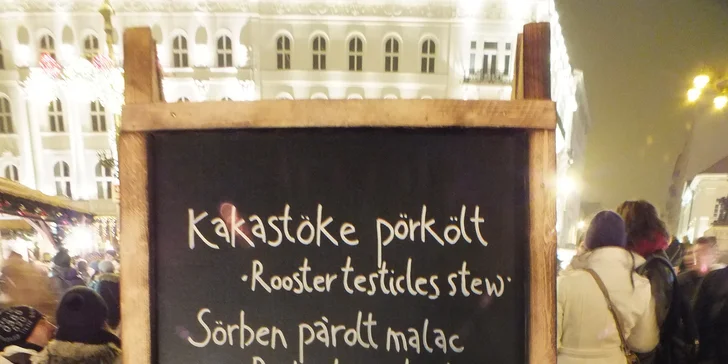 Kakastöke pörkölt
·Rooster testicles stew·
Sörben párolt malac